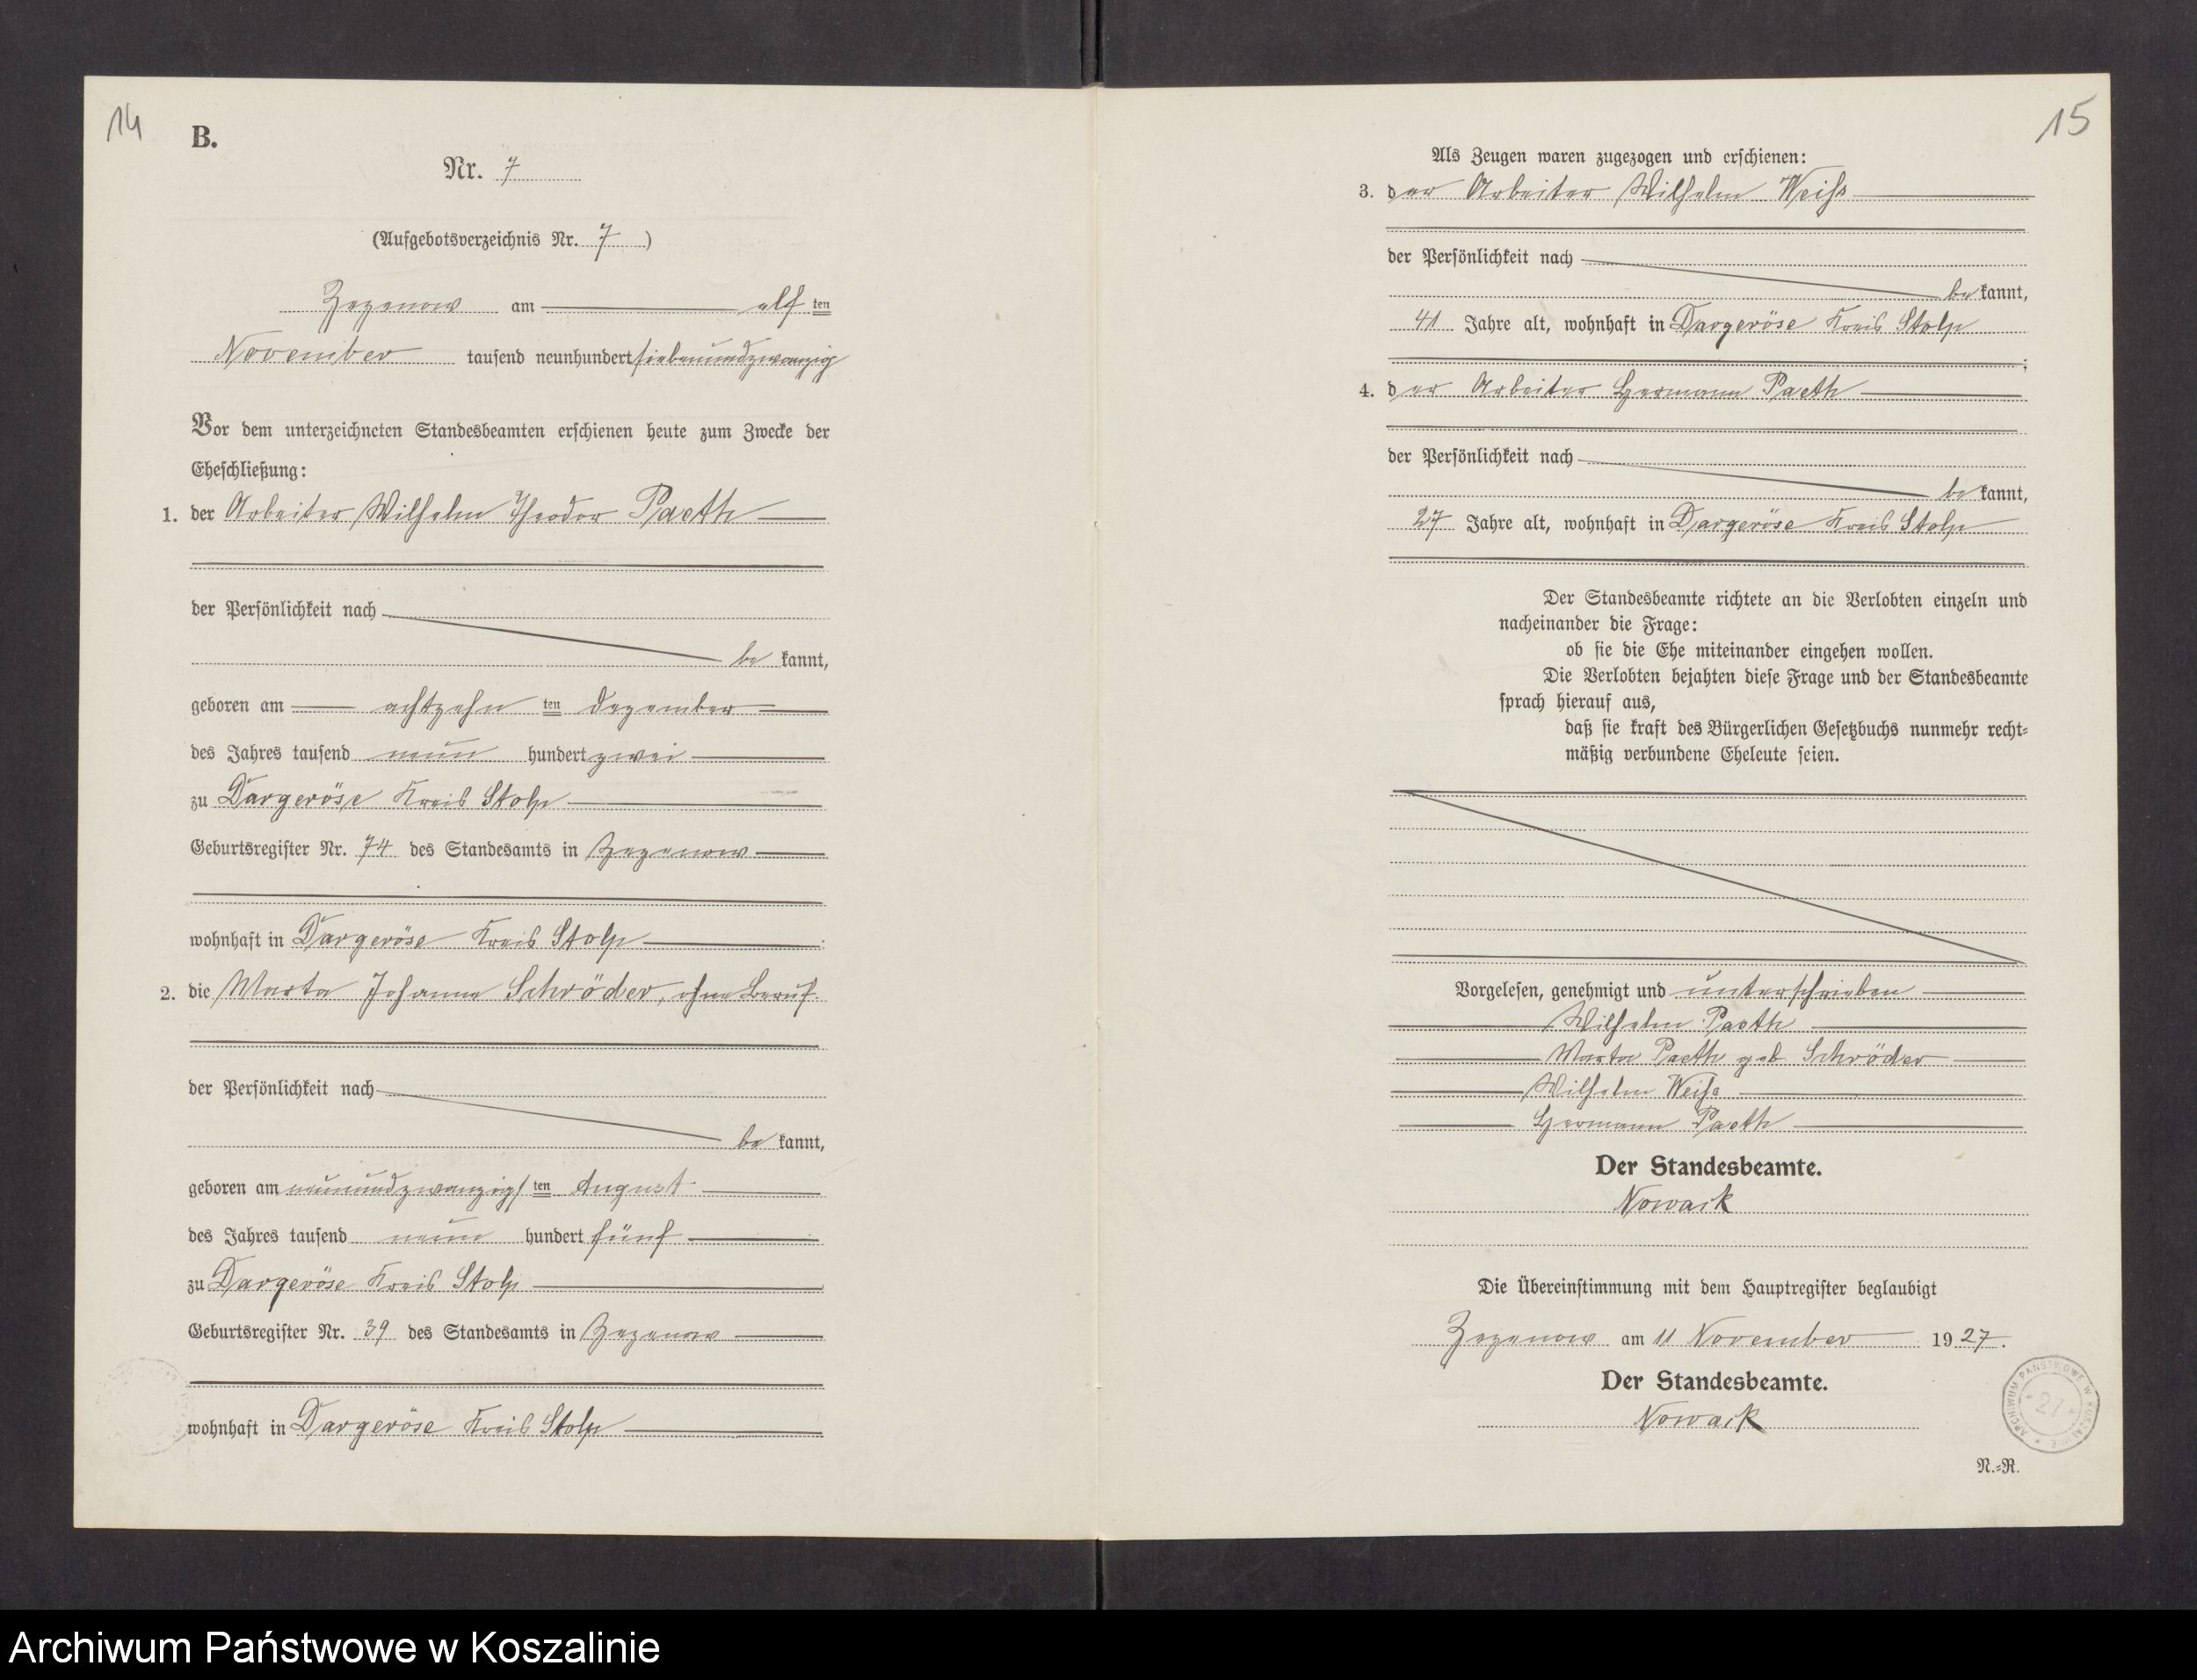 14
B.
Nr. 7
(Aufgebotsverzeichnis Nr. 7)
Zezenow am elf ten
November tausend neunhundert siebenundzwanzig
Vor dem unterzeichneten Standesbeamten erschienen heute zum Zwecke der
Eheschließung:
1. der Arbeiter Wilhelm Theodor Paeth
der Persönlichkeit nach
be kannt,
geboren am achtzehn ten Dezember
des Jahres tausend neun hundert zwei
zu Dargeröse Kreis Stolp
Geburtsregister Nr. 74 des Standesamts in Zezenow
wohnhaft in Dargeröse Kreis Stolp
2. die Marta Johanna Schröder, ohne Beruf.
der Persönlichkeit nach
be kannt,
geboren am neunundzwanzigs ten August
des Jahres tausend neun hundert fünf
zu Dargeröse Kreis Stolp
Geburtsregister Nr. 39 des Standesamts in Zezenow
wohnhaft in Dargeröse Kreis Stolp
15
Als Zeugen waren zugezogen und erschienen:
3. der Arbeiter Wilhelm Weiß
der Persönlichkeit nach
be kannt,
41 Jahre alt, wohnhaft in Dargeröse Kreis Stolp
;
4. der Arbeiter Hermann Paeth
der Persönlichkeit nach
be kannt,
27 Jahre alt, wohnhaft in Dargeröse Kreis Stolp
Der Standesbeamte richtete an die Verlobten einzeln und
nacheinander die Frage:
ob sie die Ehe miteinander eingehen wollen.
Die Verlobten bejahten diese Frage und der Standesbeamte
sprach hierauf aus,
daß sie kraft des Bürgerlichen Gesetzbuchs nunmehr recht-
mäßig verbundene Eheleute seien.
Vorgelesen, genehmigt und unterschrieben
Wilhelm Paeth
Marta Paeth geb. Schröder
Wilhelm Weiß
Hermann Paeth
Der Standesbeamte.
Nowack
Die Übereinstimmung mit dem Hauptregister beglaubigt
Zezenow am 11 November 1927.
Der Standesbeamte.
Nowack
ARCHIWUM PAŃSTWOWE W KOSZALINIE
21
N.-R.
Archiwum Państwowe w Koszalinie